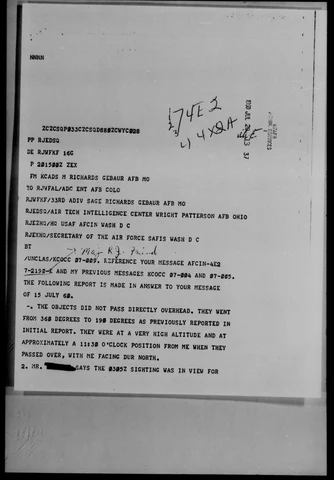 NNNN
ZCZCSQP033CZCSQD588ZCWYC020
4E2
4X2A
PP RJEDSQ
DE RJWFKF 16G
P 201500Z ZEX
FM KCADS M RICHARDS GEBAUR AFB MO
TO RJWFAL/ADC ENT AFB COLO
RJWFKF/33RD ADIV SAGE RICHARDS GEBAUR AFB MO
RJEDSQ/AIR TECH INTELLIGENCE CENTER WRIGHT PATTERSON AFB OHIO
RJEZHQ/HQ USAF AFCIN WASH D C
RJEXNO/SECRETARY OF THE AIR FORCE SAFIS WASH D C
BT
Maj R.J. Friend
/UNCLAS/KCOCC 07-009. REFERENCE YOUR MESSAGE AFCIN-4E2
7-2190-E AND MY PREVIOUS MESSAGES KCOCC 07-004 AND 07-005.
THE FOLLOWING REPORT IS MADE IN ANSWER TO YOUR MESSAGE
OF 15 JULY 60.
-. THE OBJECTS DID NOT PASS DIRECTLY OVERHEAD. THEY WENT
FROM 360 DEGREES TO 190 DEGREES AS PREVIOUSLY REPORTED IN
INITIAL REPORT. THEY WERE AT A VERY HIGH ALTITUDE AND AT
APPROXIMATELY A 11:30 O'CLOCK POSITION FROM ME WHEN THEY
PASSED OVER, WITH ME FACING DUR NORTH.
2. MR. SAYS THE 0305Z SIGHTING WAS IN VIEW FOR